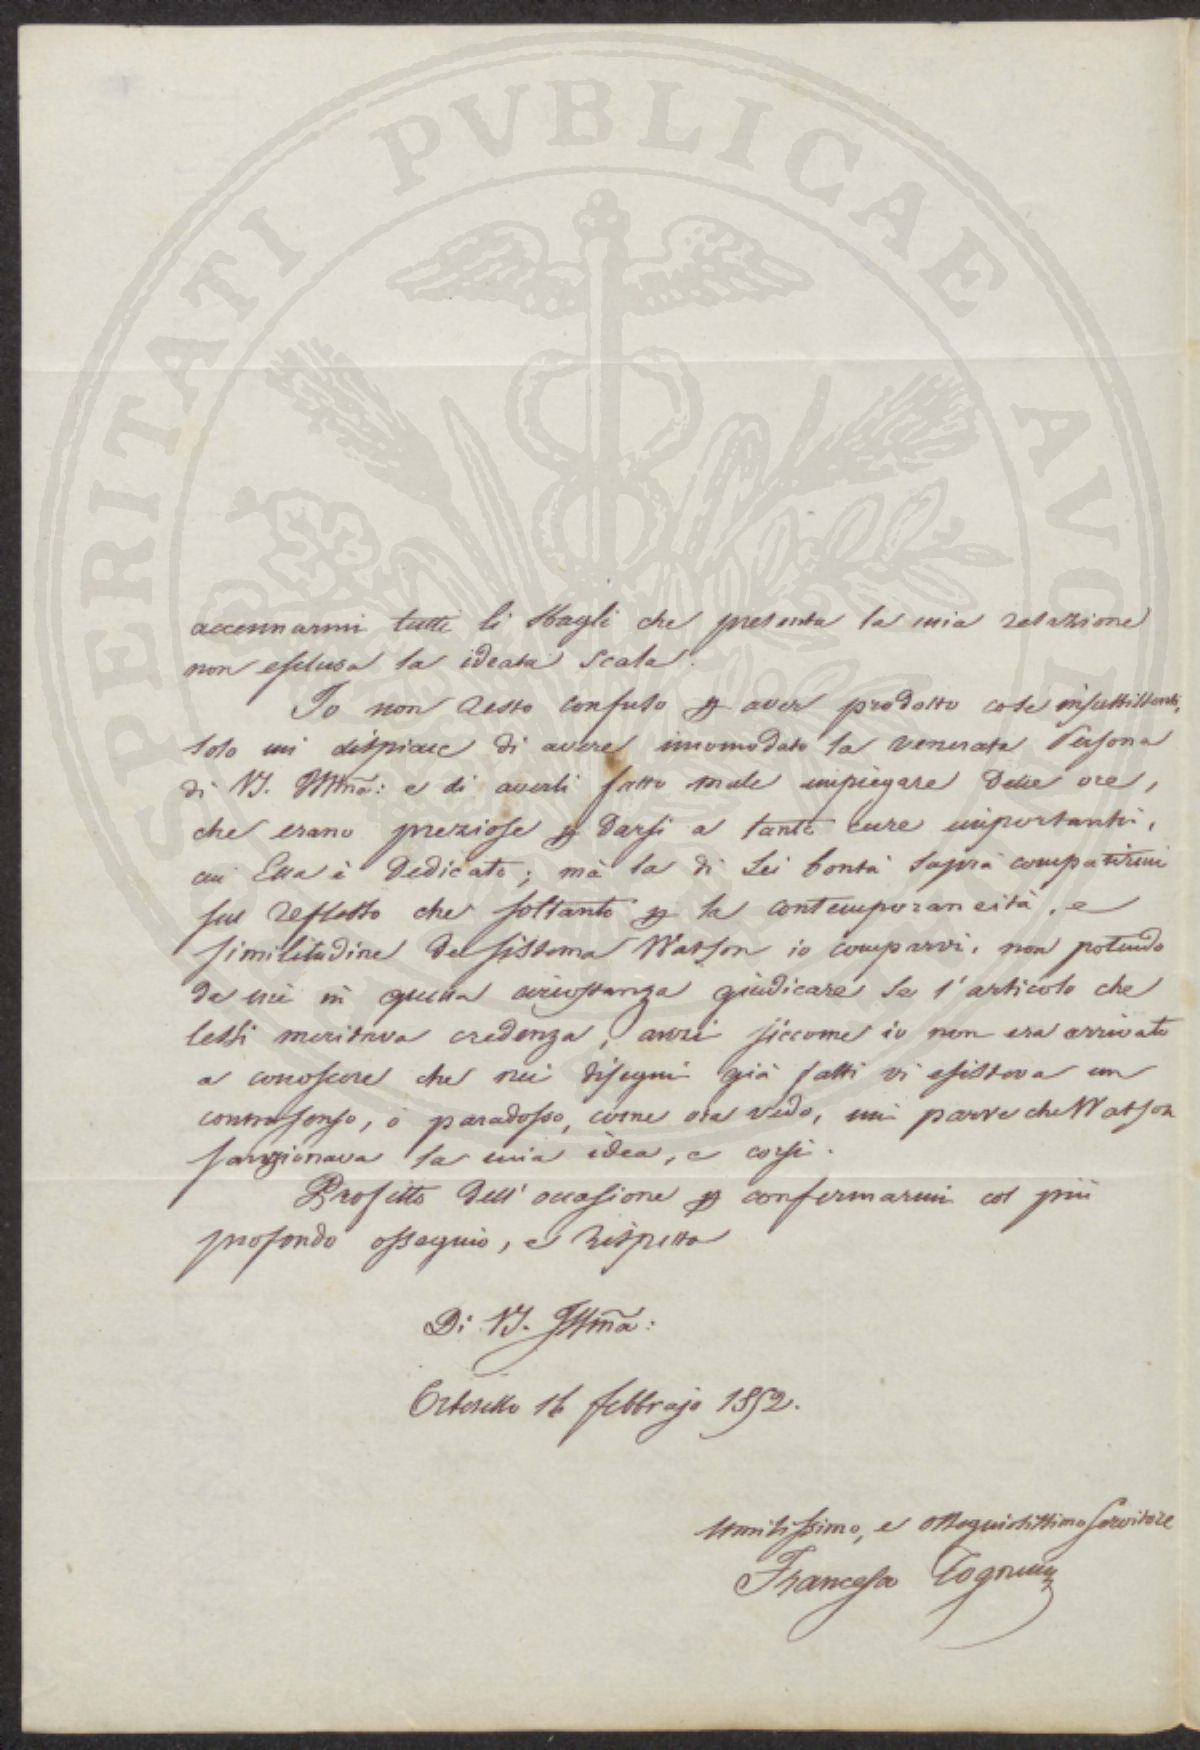 PROSPERITATI PVBLICAE AVGENDAE
accennarmi tutti li sbagli che presenta la mia relazione
non esclusa la ideata scala.
Io non resto confuso p aver prodotto cose insussistenti,
solo mi dispiace di avere incomodato la venerata Persona
di VS. Illma: e di averli fatto male impiegare delle ore,
che erano preziose p darsi a tante cure importanti,
cui Ella è dedicato; mà la di Lei bontà saprà compatirmi
sul reflesso che soltanto p la contemporaneità, e
similitudine del sistema Watson io comparvi, non potendo
da me in quella circostanza giudicare se l'articolo che
lessi meritava credenza, anzi siccome io non era arrivato
a conoscere che nei disegni già fatti vi esisteva un
contrasenso, o paradosso, come ora vedo, mi parve che Watson
sanzionava la mia idea, e corsi.
Profitto dell'occasione p confermarmi col più
profondo ossequio, e rispetto
Di VS. Illma:
Orbetello 16 febbrajo 1852.
Umilissimo, e ossequiosissimo Servitore
Francesco